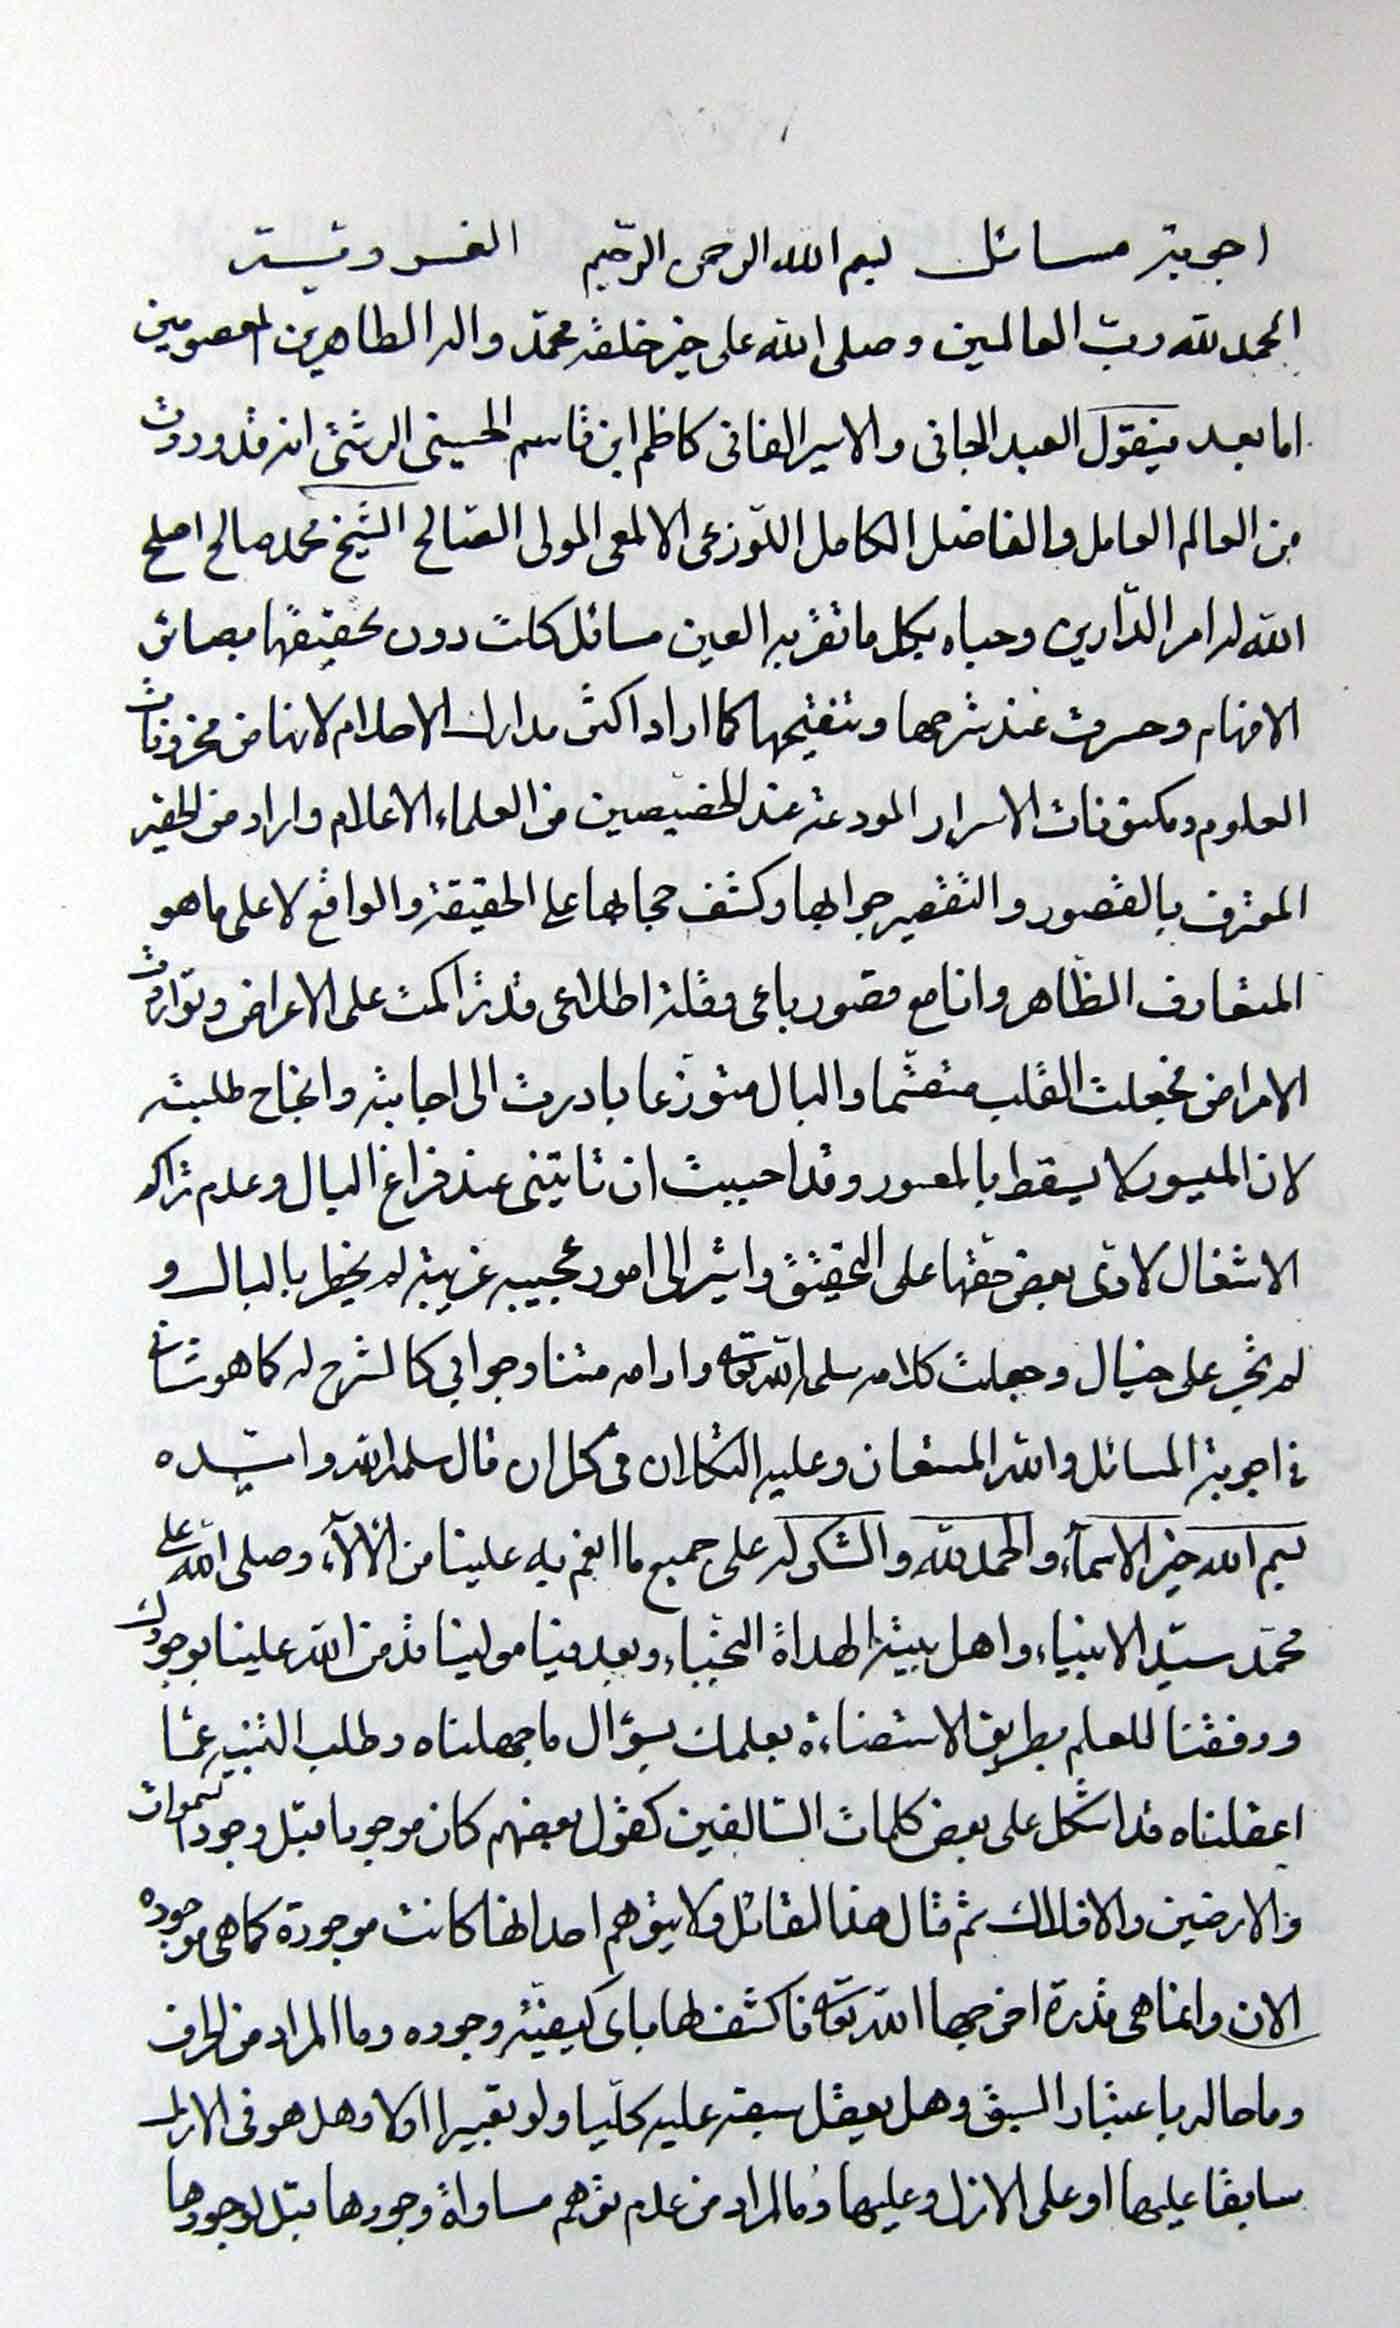 اجوبة مسائل بسم الله الرحمن الرحيم
الحمد لله رب العالمين وصلى الله على خير خلقه محمد واله الطاهرين المعصومين
اما بعد فيقول العبد الجانى والاسير الفانى كاظم ابن قاسم الحسينى الرشتى انه قد وردت
من العالم العامل والفاضل الكامل اللوزعى الالمعى المولى الصالح الشيخ محمد صالح اصلح
الله له امر الدارين وحباه بكل ما تقر به العين مسائل كلت دون تحقيقها بصائر
الافهام وحسرت عند شرحها وتنقيحها كما اراد اكثر مدارك الاحلام لانها من مخزونات
العلوم ومكنونات الاسرار المودعة عند الخصيصين من العلماء الاعلام واراد من الحقير
المعترف بالقصور والتقصير جوابها وكشف حجابها على الحقيقة والواقع لا على ما هو
المتعارف الظاهر وانا مع قصور باعى وقلة اطلاعى قد تراكمت على الاعراض وتواردت
الامراض فجعلت القلب متقسما والبال متوزعا بادرت الى اجابته وانجاح طلبته
لان الميسور لا يسقط بالمعسور وقد احببت ان تاتينى عند فراغ البال وعدم تراكم
الاشغال لادى بعض حقها على التحقيق واشير الى امور عجيبه غريبة لم يخطر بالبال و
لم تجر على خيال وجعلت كلامه سلمه الله تعالى وادامه متنا وجوابي كالشرح له كما هو شانى
فى اجوبة المسائل والله المستعان وعليه التكلان فى كل ان قال سلمه الله وايده
بسم الله خير الاسمآء والحمد لله والشكر له على جميع ما انعم به علينا من الآلآء وصلى الله على
محمد سيد الانبياء واهل بيته الهداة النجباء وبعد فيا مولينا قد من الله علينا بوجودك
ووفقنا للعلم بطريق الاستضاءة بعلمك بسؤال ما جهلناه وطلب التنبيه عما
اغفلناه قد اشكل على بعض كلمات السالفين كقول بعضهم كان موجودا قبل وجود السموات
والارضين والافلاك ثم قال هذا القائل ولا يتوهم احد انها كانت موجودة كما هى موجوده
الان وانما هى قدرة اخرجها الله تعالى فاكشف لها باى كيفية وجوده وما المراد من الحرف
وما حاله باعتبار السبق وهل يعقل سبقه عليه كليا ولو تعبيرا اولا وهل هو فى الازل
سابقا عليها او على الازل وعليها وما المراد من عدم توهم مساواة وجودها قبل لوجودها